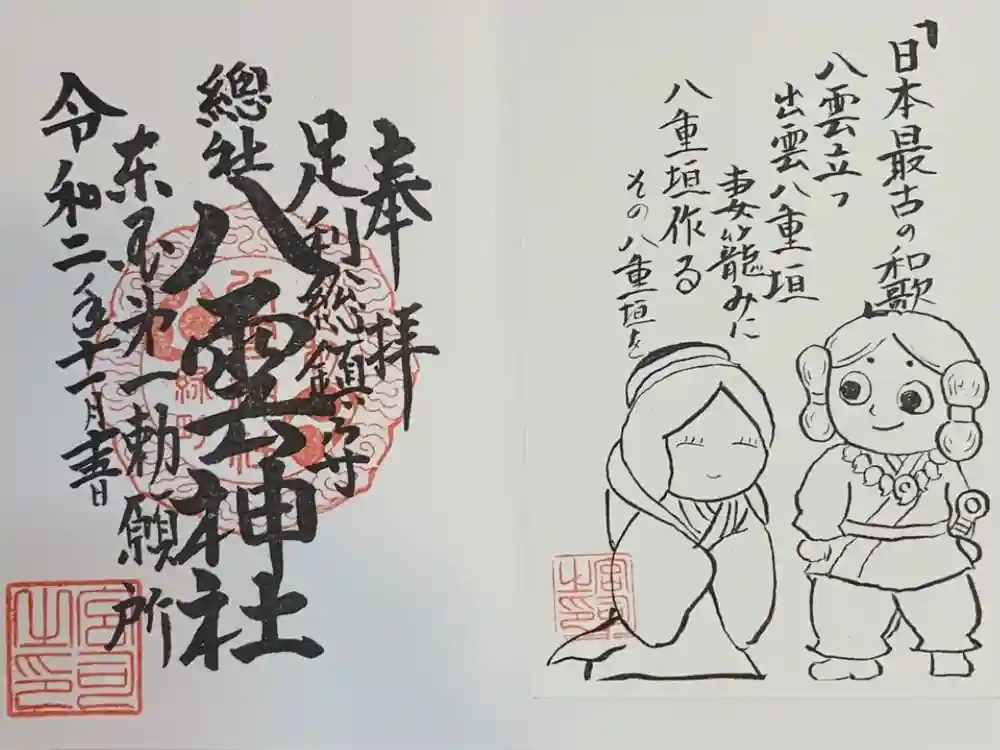 「日本最古の和歌」
八雲立つ
出雲八重垣
妻籠みに
八重垣作る
その八重垣を
奉拝
足利総鎮守
總社
八雲神社
東国第一勅願所
令和二年十一月吉日
緑町
宮司之印
宮司之印